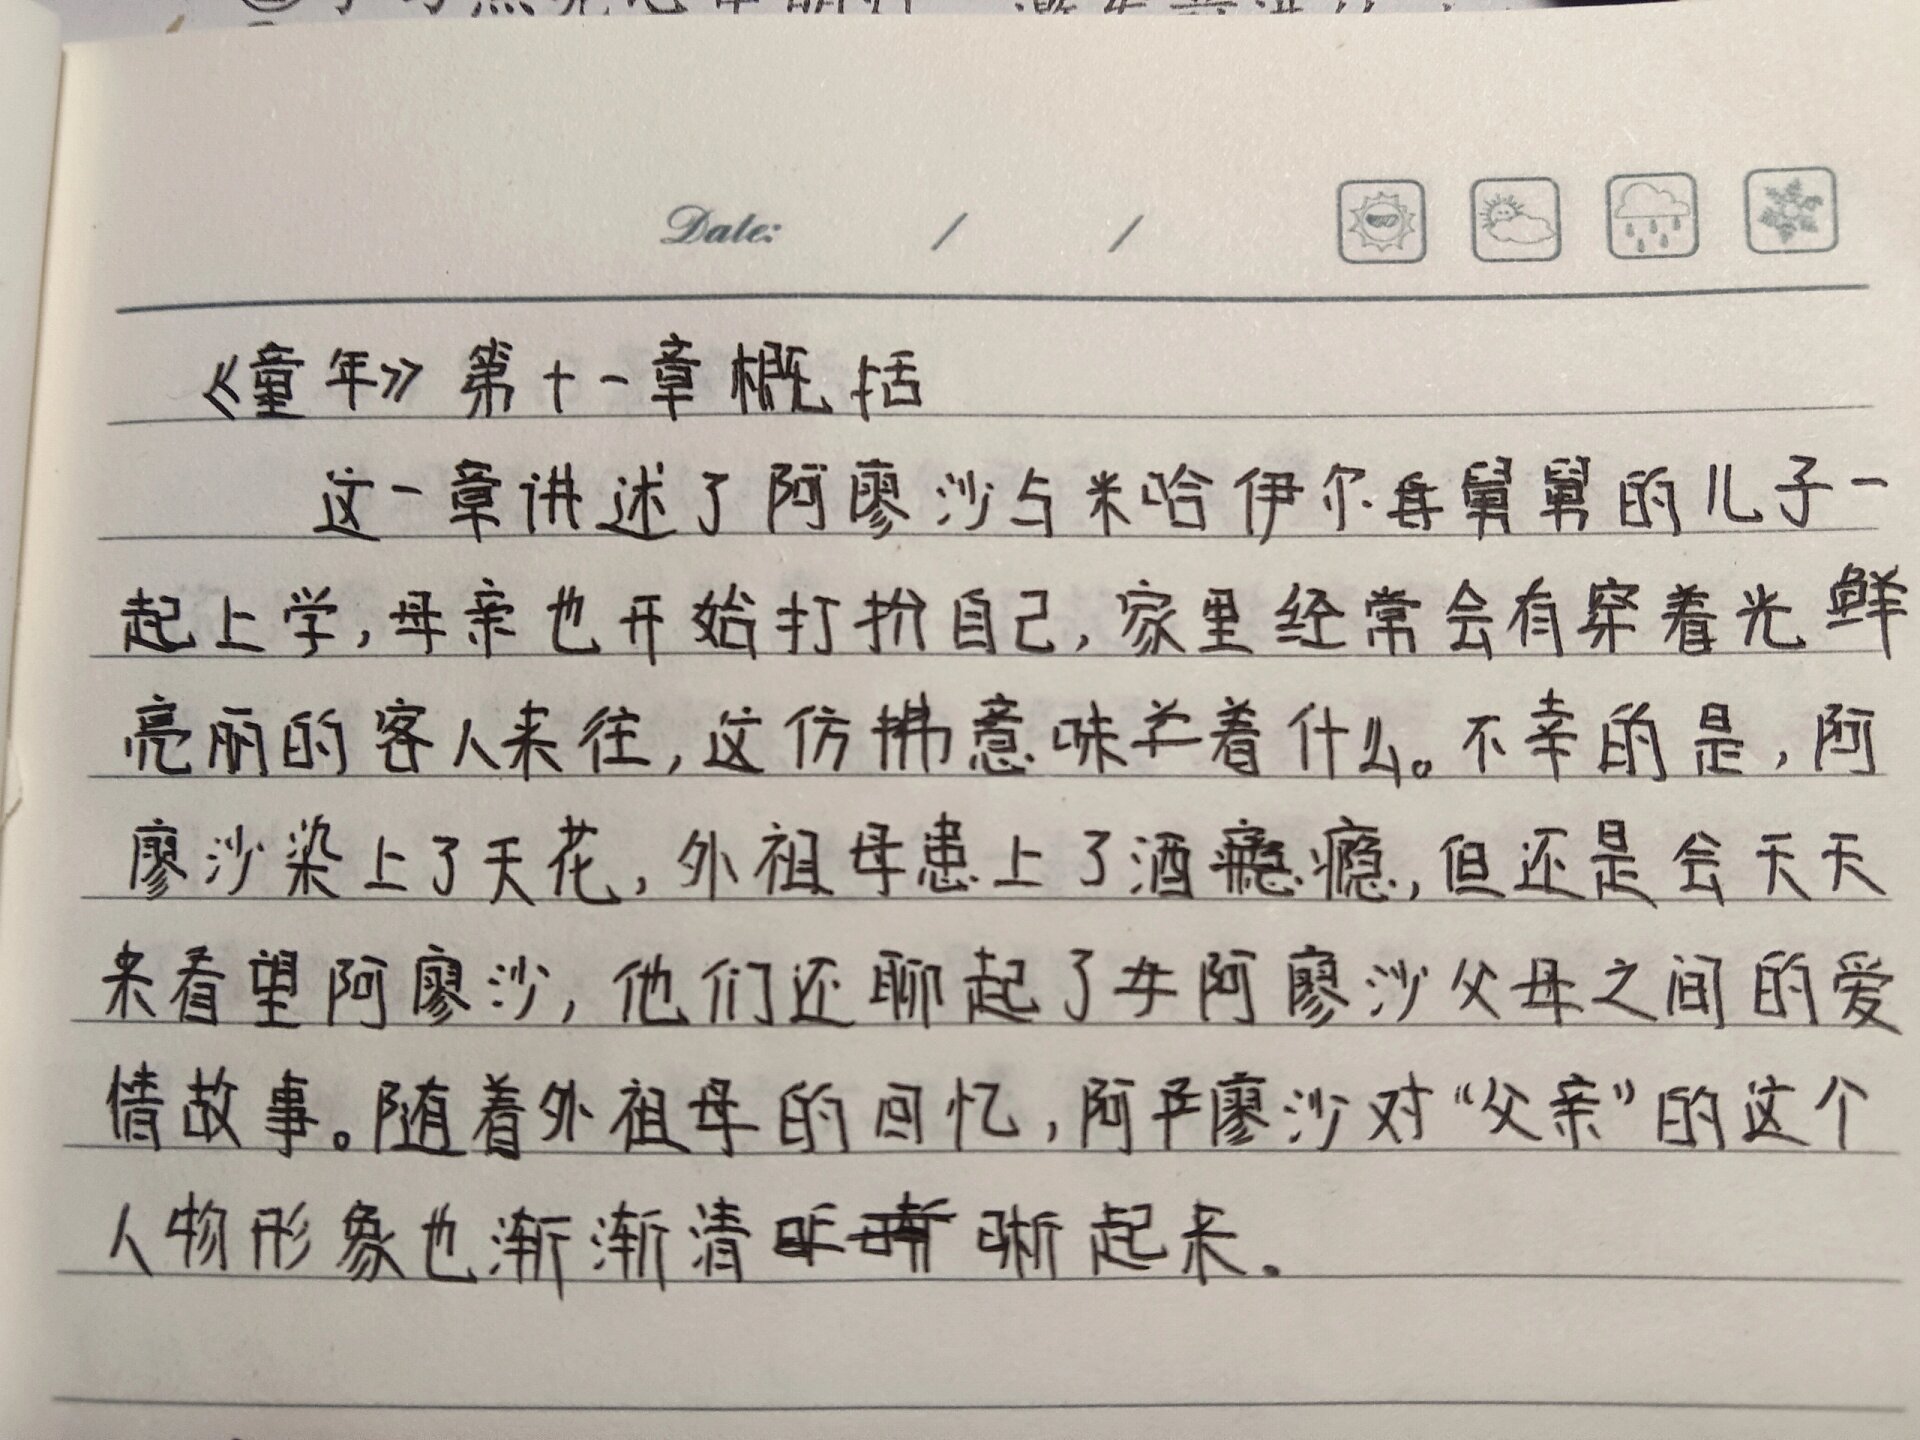 Date: / /
《童年》第十一章概括
这一章讲述了阿廖沙与米哈伊尔舅舅的儿子一
起上学,母亲也开始打扮自己,家里经常会有穿着光鲜
亮丽的客人来往,这仿拂意味着什么。不幸的是,阿
廖沙染上了天花,外祖母患上了酒瘾,但还是会天天
来看望阿廖沙,他们还聊起了阿廖沙父母之间的爱
情故事。随着外祖母的回忆,阿廖沙对“父亲”的这个
人物形象也渐渐清晰起来。